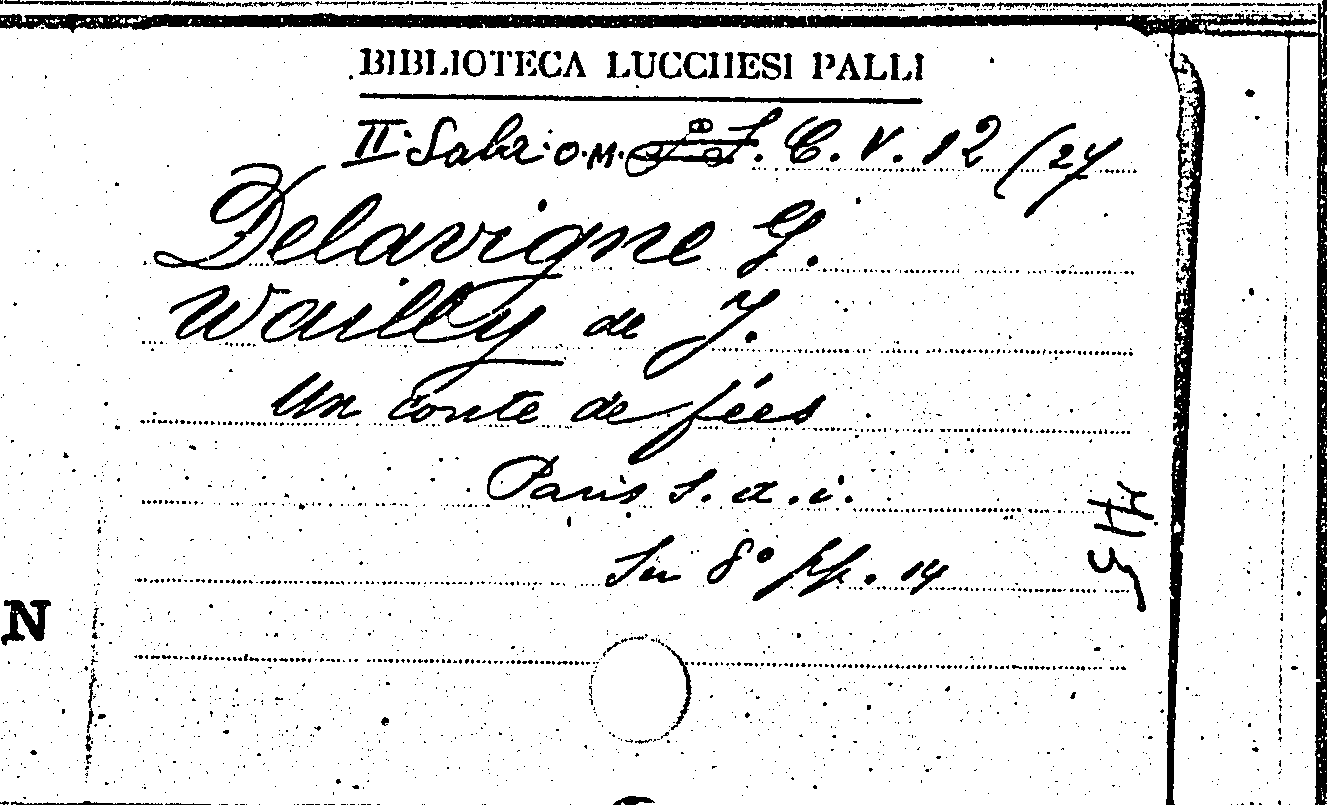 BIBLIOTECA LUCCHESI PALLI
II. Sala: O.M. F. C. V. 12 (27
Delavigne G.
Wailly de J.
Un conte de fées
Paris s. d. i.
In 8° pp. 14
N